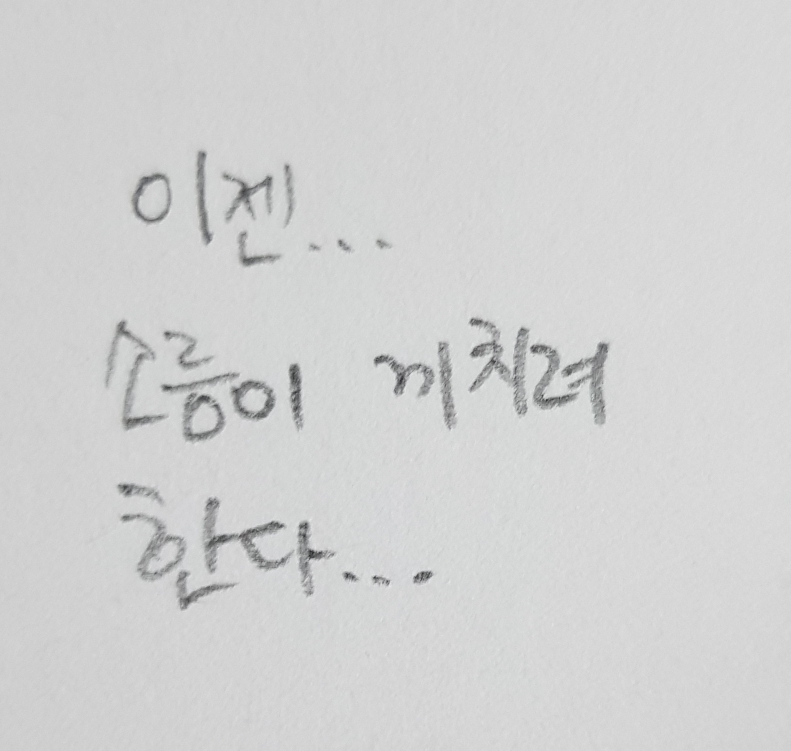 이젠...
소름이 끼치려
한다...